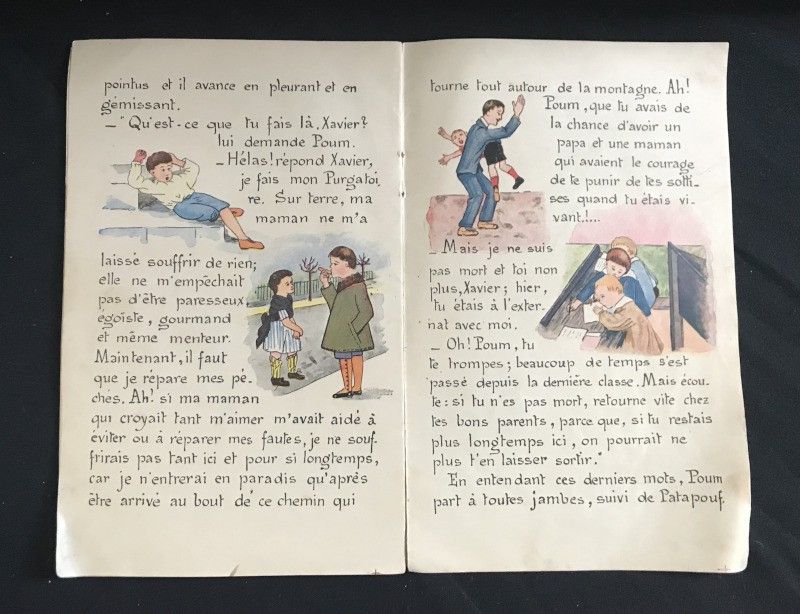 pointus et il avance en pleurant et en
gémissant.
_ "Qu'est-ce que tu fais là, Xavier?
lui demande Poum.
_ Hélas! répond Xavier,
je fais mon Purgatoi.
re. Sur terre, ma
maman ne m'a
laissé souffrir de rien;
elle ne m'empêchait
pas d'être paresseux,
égoïste, gourmand
et même menteur.
Maintenant, il faut
que je répare mes pé-
chés. Ah! si ma maman
qui croyait tant m'aimer m'avait aidé à
éviter ou à réparer mes fautes, je ne souf.
frirais pas tant ici et pour si longtemps,
car je n'entrerai en paradis qu'après
être arrivé au bout de ce chemin qui
tourne tout autour de la montagne. Ah!
Poum, que tu avais de
la chance d'avoir un
papa et une maman
qui avaient le courage
de te punir de tes sotti-
ses quand tu étais vi-
vant!...
_ Mais je ne suis
pas mort et toi non
plus, Xavier; hier,
tu étais à l'exter-
nat avec moi.
_ Oh! Poum, tu
te trompes; beaucoup de temps s'est
passé depuis la dernière classe. Mais écou-
te: si tu n'es pas mort, retourne vite chez
tes bons parents, parce que, si tu restais
plus longtemps ici, on pourrait ne
plus t'en laisser sortir."
En entendant ces derniers mots, Poum
part à toutes jambes, suivi de Patapouf.